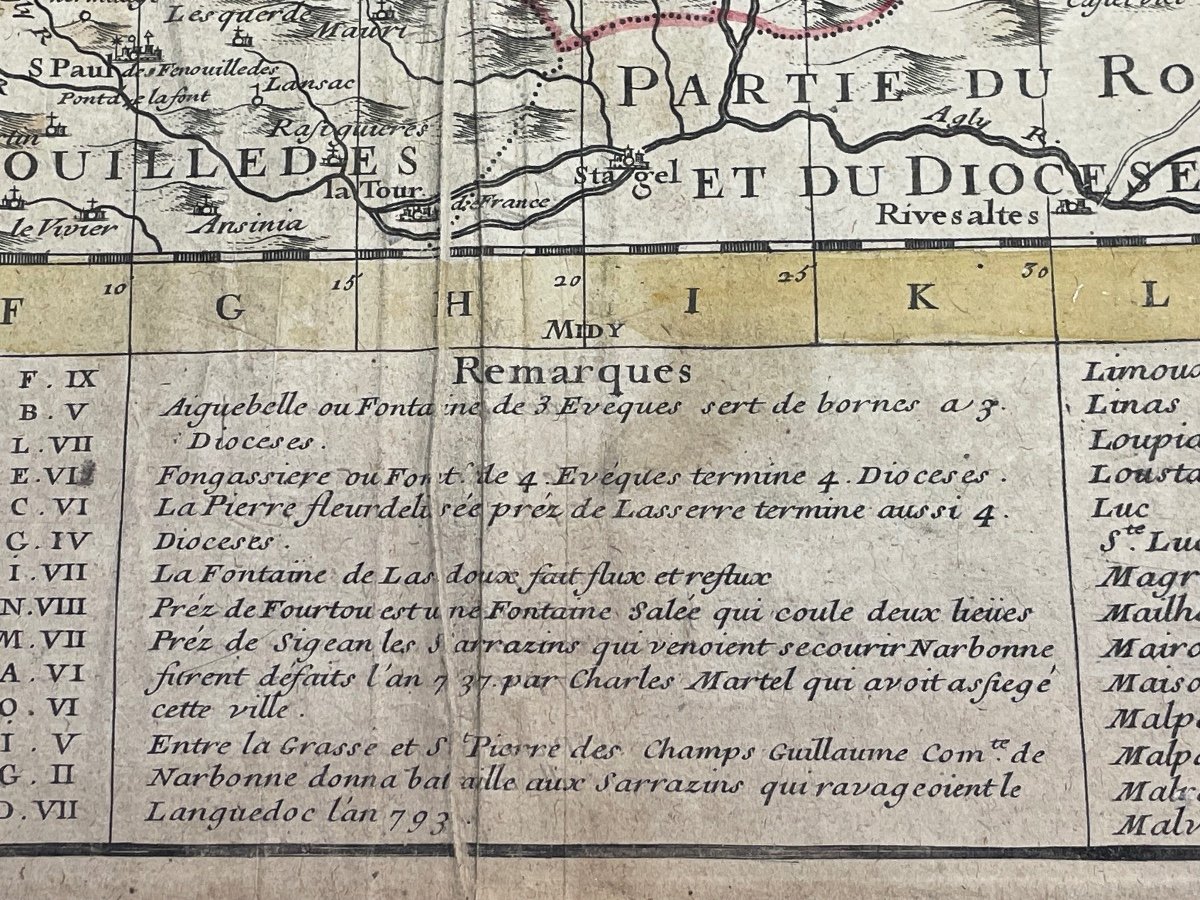 Lesquerde
Mauri
S Paul des Fenouilledes
Lansac
Pont de la font
Rasiguieres
OUILLEDES
la Tour de France
le Vivier
Ansinia
PARTIE DU RO
Agly R.
Stagel
ET DU DIOCESE
Rivesaltes
10 15 20 25 30
F G H I K L
MIDY
Remarques
Aiguebelle ou Fontaine de 3 Evéques sert de bornes a 3.
Dioceses.
Fongassiere ou Font.e de 4. Evéques termine 4. Dioceses.
La Pierre fleurdelisée préz de Lasserre termine aussi 4.
Dioceses.
La Fontaine de Las doux fait flux et reflux
Préz de Fourtou est une Fontaine Salée qui coule deux lieües
Préz de Sigean les Sarrazins qui venoient secourir Narbonne
furent défaits l'an 737. par Charles Martel qui avoit assiegé
cette ville.
Entre la Grasse et S.t Pierre des Champs Guillaume Com.te de
Narbonne donna bataille aux Sarrazins qui ravageoient le
Languedoc l'an 793.
F. IX
B. V
L. VII
E. VI
C. VI
G. IV
I. VII
N. VIII
M. VII
A. VI
O. VI
I. V
G. II
D. VII
Limoux
Linas
Loupia
Lousta
Luc
S.te Luc
Magr
Mailh
Mairo
Maiso
Malpa
Malpa
Matra
Malv